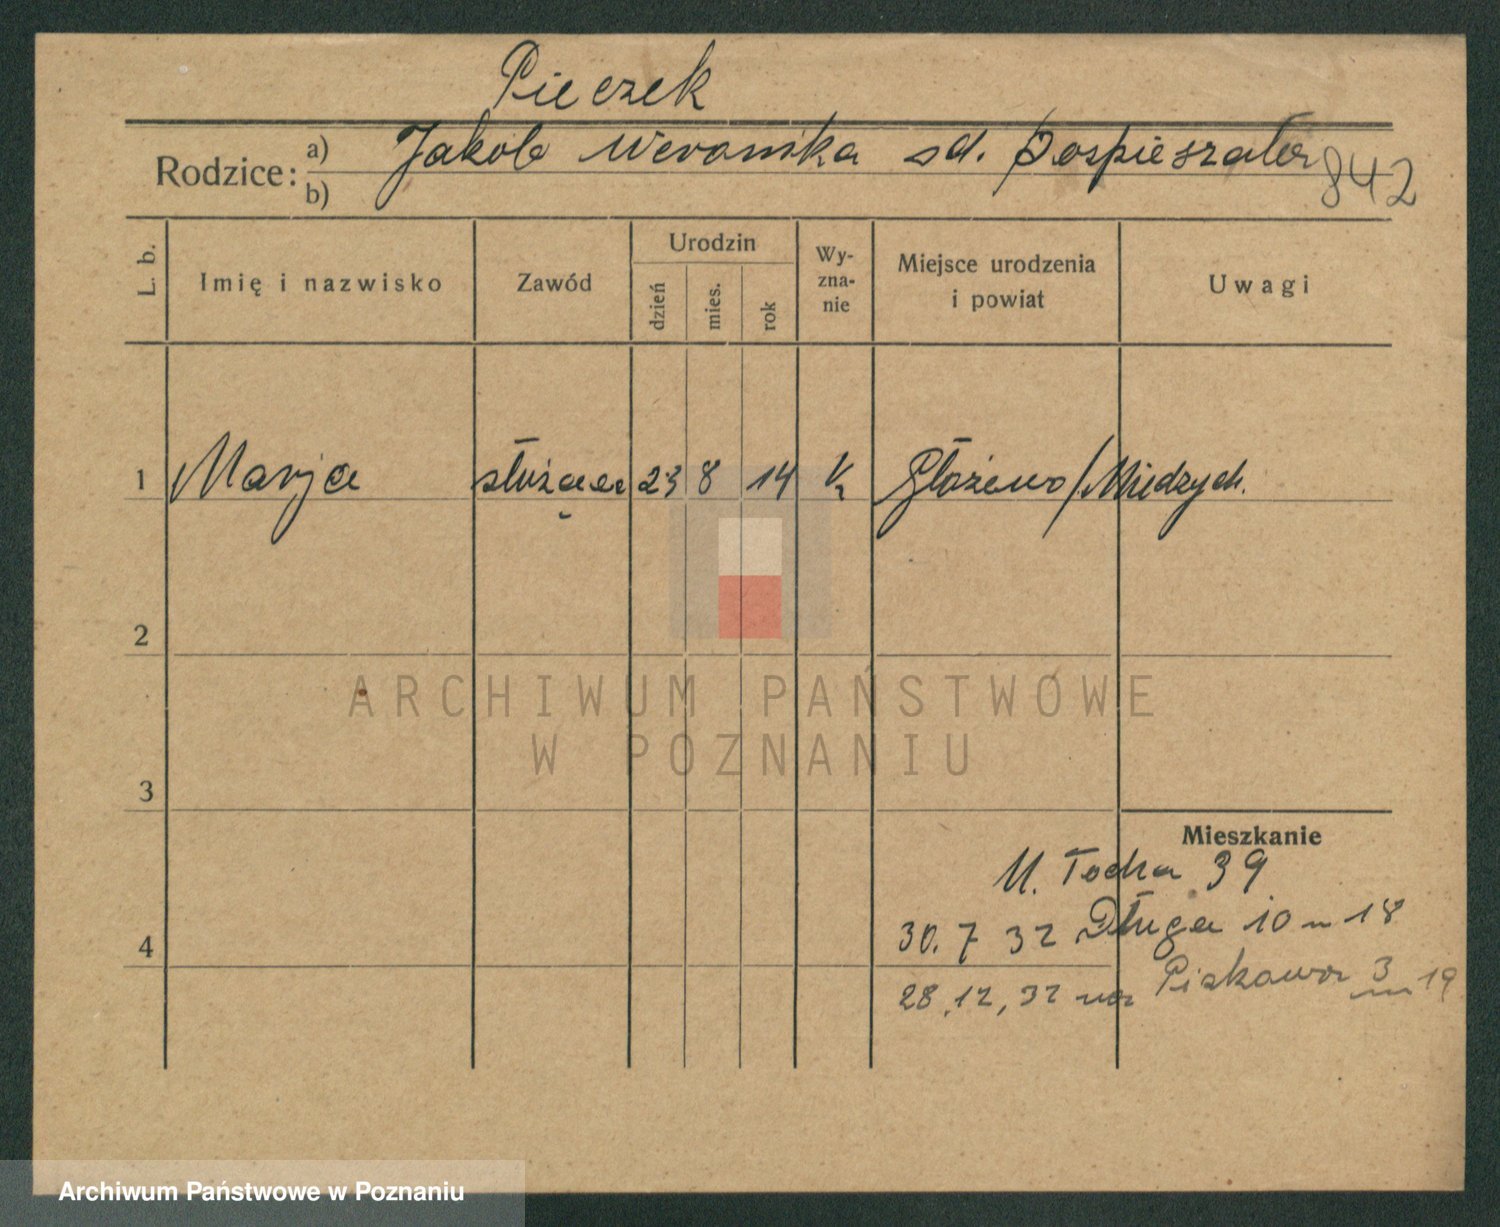 Pieczek
Rodzice: a) Jakób Weronika sd. Pospieszała
b)
842
L. b.
Imię i nazwisko
Zawód
Urodzin
dzień
mies.
rok
Wy-
zna-
nie
Miejsce urodzenia
i powiat
Uwagi
1 Marja służąca 23 8 14 K Głażewo/Miedzych.
2
ARCHIWUM PAŃSTWOWE
W POZNANIU
3
Mieszkanie
39
4 30. 7 32 Długa 10 m 18
28.12,32 na Piekawa 3 m 19
Archiwum Państwowe w Poznaniu